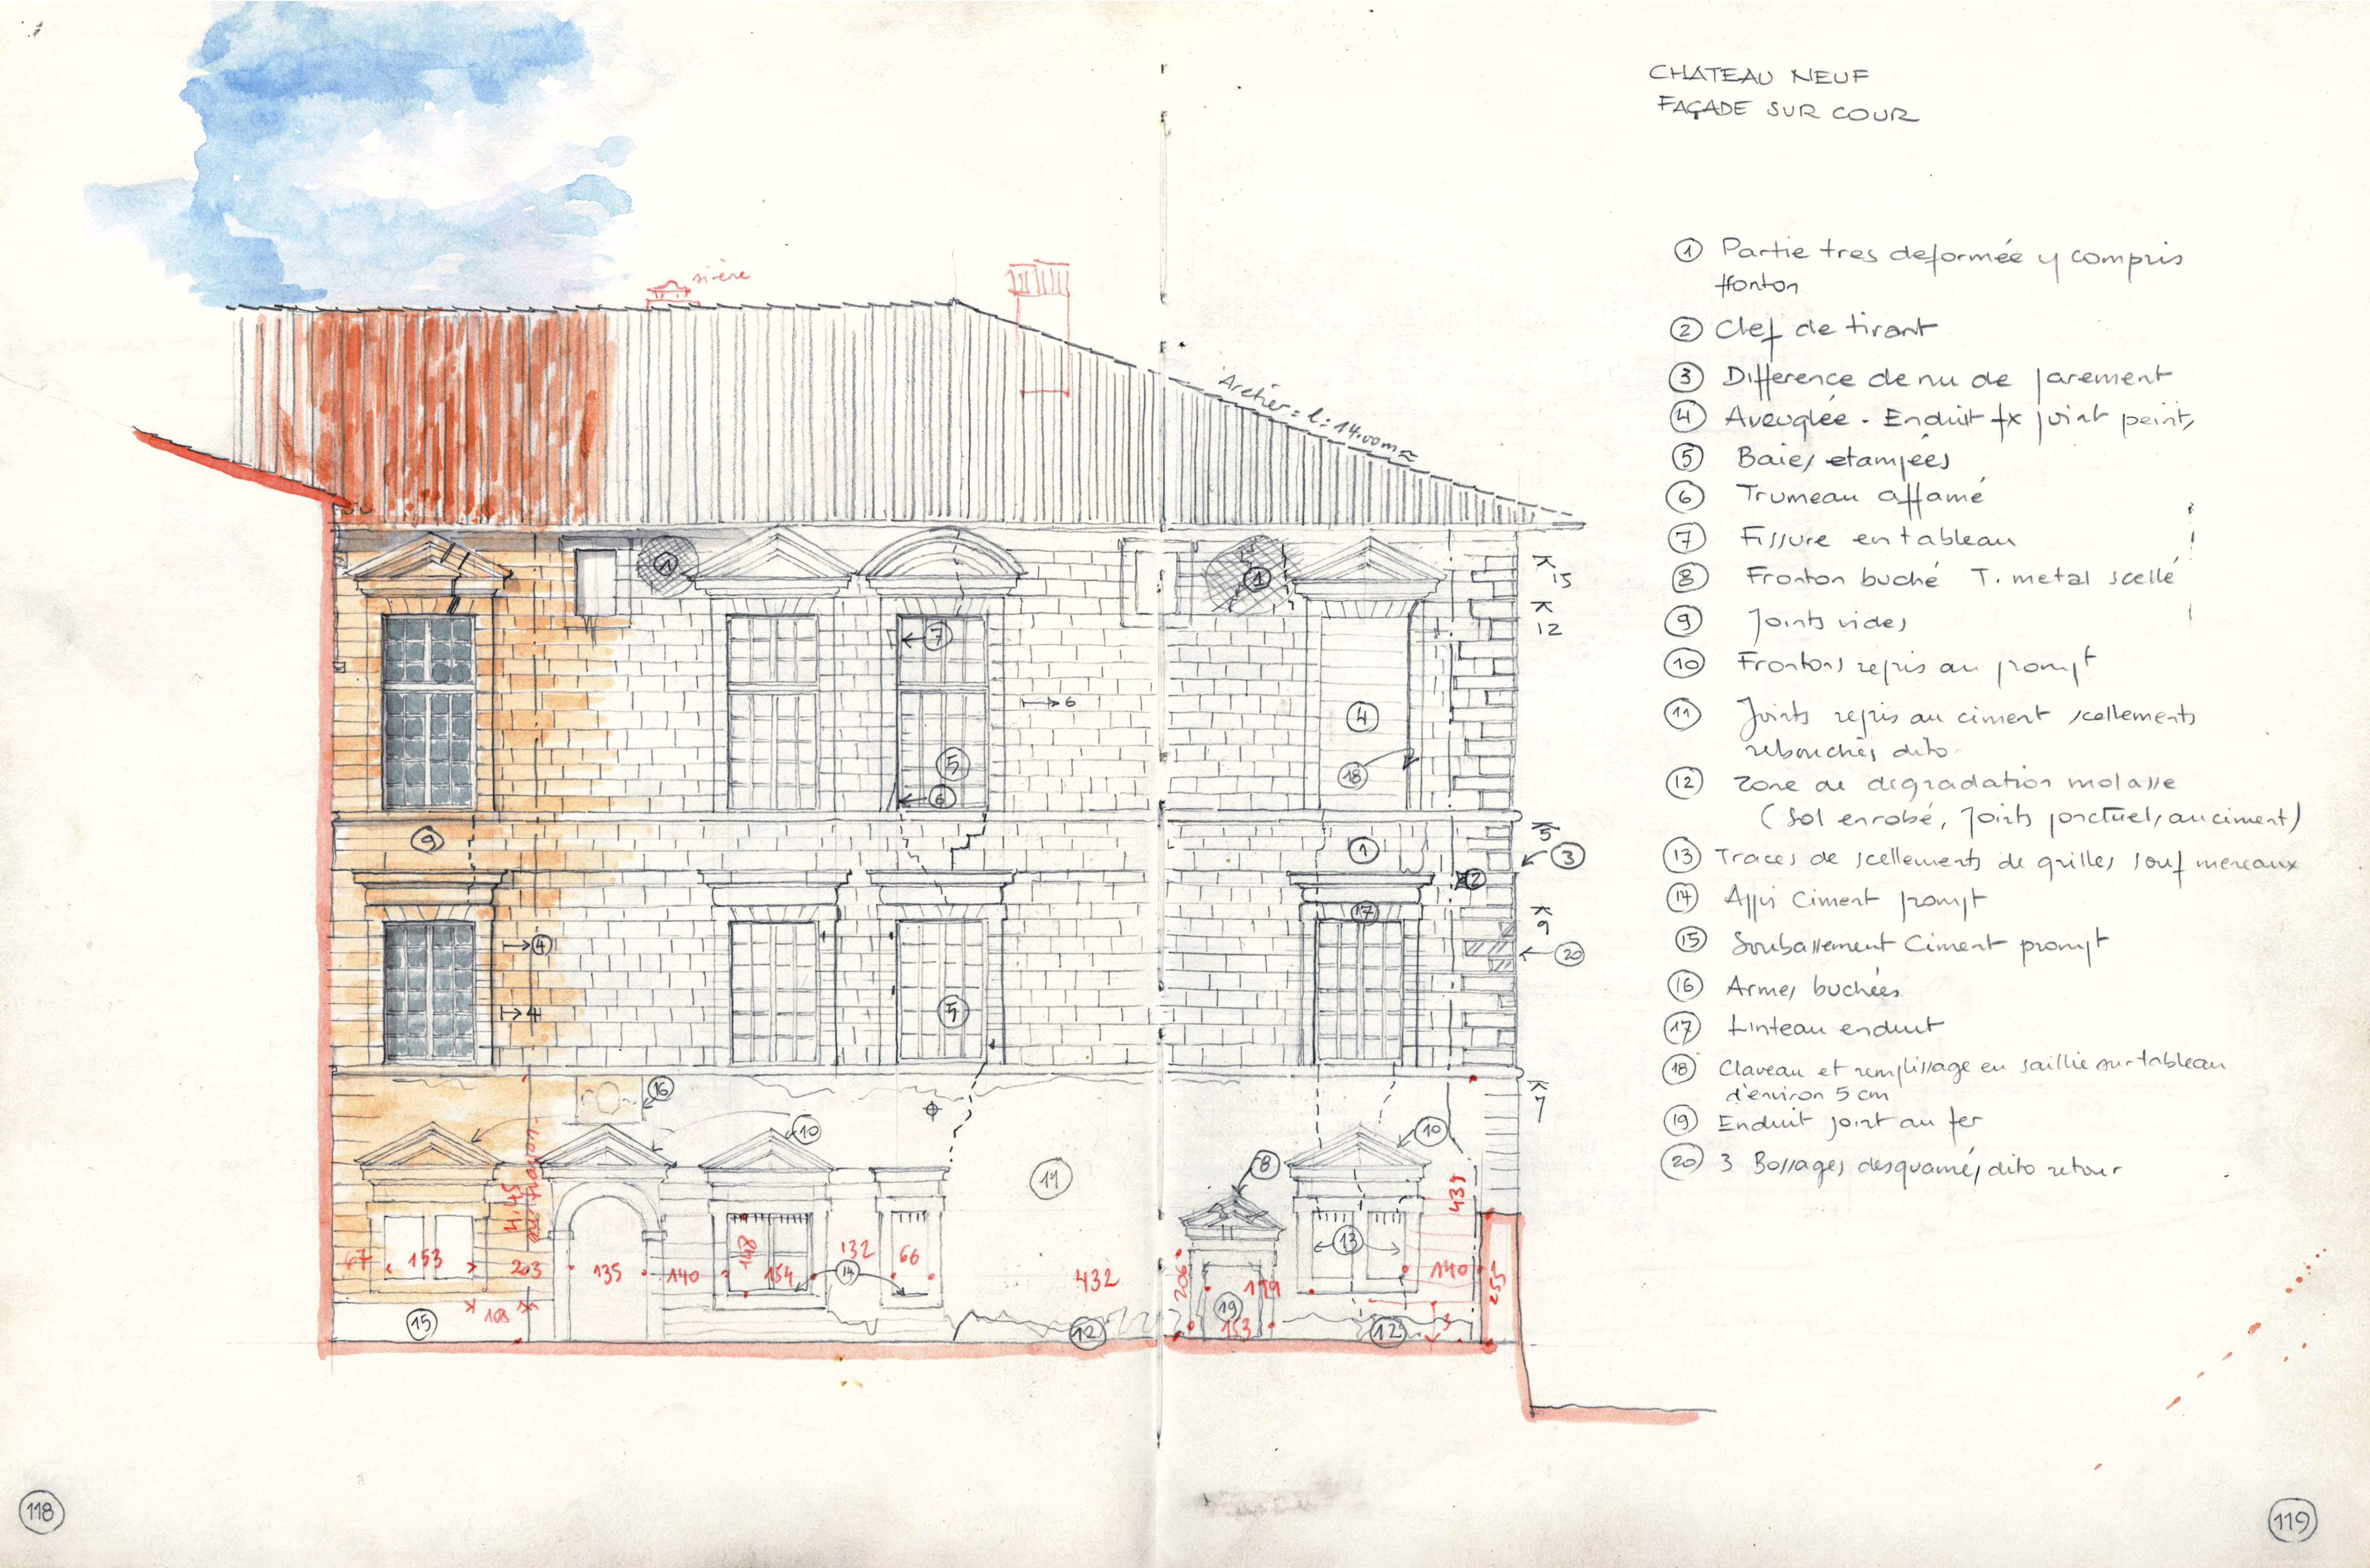 CHATEAU NEUF
FAÇADE SUR COUR
① Partie tres deformée y compris
fronton
② Clef de tirant
③ Difference de nu de parement
④ Aveuglée - Enduit fx joint peint,
⑤ Baies etampées
⑥ Trumeau affamé
⑦ Fissure en tableau
⑧ Fronton buché T. metal scellé
⑨ Joints vides
⑩ Frontons repis au prompt
⑪ Joints repris au ciment scellements
rebouchés dito
⑫ Zone de degradation molasse
(Sol enrobé, Joints ponctuels au ciment)
⑬ Traces de scellements de grilles sauf meneaux
⑭ Appis Ciment prompt
⑮ Soubassement Ciment prompt
⑯ Armes buchées
⑰ Linteau enduit
⑱ Claveau et remplissage en saillie sur tableau
d'environ 5 cm
⑲ Enduit joint au fer
⑳ 3 Bossages desquamés dito retour
Aretier = l: 14.00m ≈
① ①
15
12
⑦
6
④
⑤
⑱
⑥
⑨
①
5
③
②
⑰
9
④
⑳
4
⑤
⑯
7
⑩ ⑩
⑧
⑪
4.45
439
67 153 203 135 140 148 154 132 66
⑭
432
206 179
⑬
140
255
108
⑮
⑲
153
⑫ ⑫
3
118
119